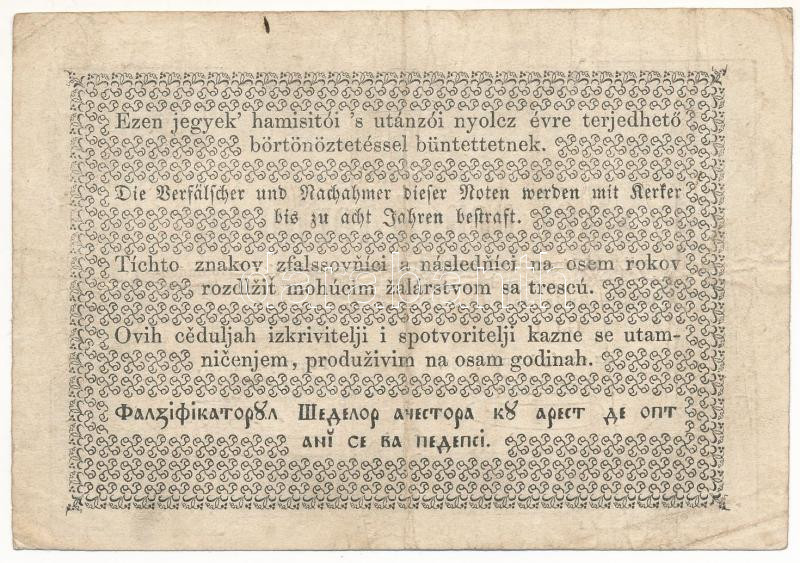 Ezen jegyek' hamisitói 's utánzói nyolcz évre terjedhető
börtönöztetéssel büntettetnek.
Die Verfälscher und Nachahmer dieser Noten werden mit Kerker
bis zu acht Jahren bestraft.
Tíchto znakov zfalssovňíci a následňíci na osem rokov
rozdúžiť mohúcim žalárstvom sa trescú.
Ovih cěduljah izkrivitelji i spotvoritelji kazne se utam-
ničenjem, produživim na osam godinah.
Фалꙃіфікаторꙋл Шеделор ачестора кꙋ арест де опт
анĭ се ва педепсі.
darabanth